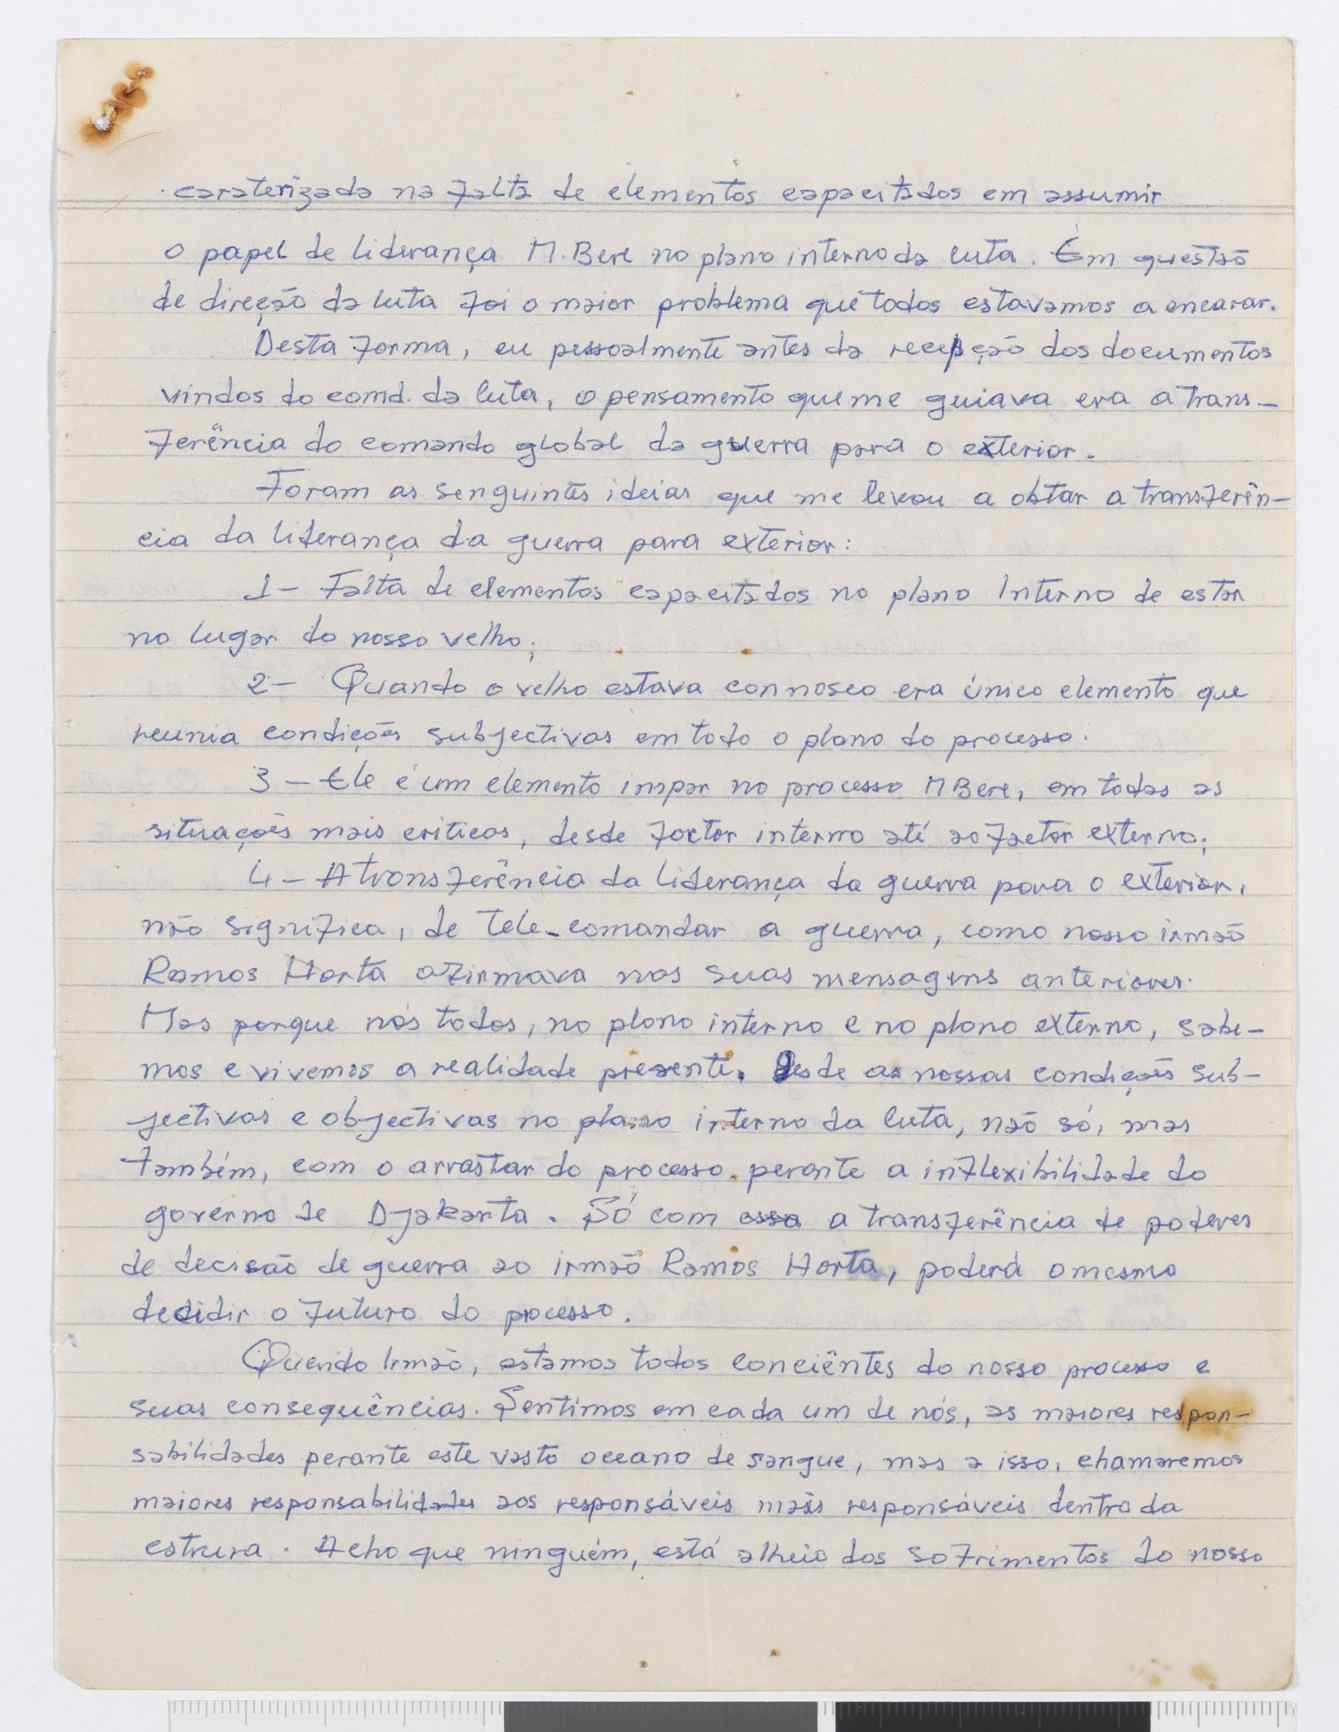 caraterizada na falta de elementos capacitados em assumir
o papel de liderança M.Bere no plano interno da luta. Em questão
de direção da luta foi o maior problema que todos estavamos a encarar.
Desta forma, eu pessoalmente antes da recepção dos documentos
vindos do comd. da luta, o pensamento que me guiava era a trans-
ferência do comando global da guerra para o exterior.
Foram as senguintes ideias que me levou a obtar a transferên-
cia da liderança da guerra para exterior:
1- Falta de elementos capacitados no plano Interno de estar
no lugar do nosso velho;
2- Quando o velho estava connosco era único elemento que
reunia condições subjectivas em todo o plano do processo.
3- Ele é um elemento impar no processo M Bere, em todas as
situações mais criticas, desde factor interno até ao factor externo;
4- A transferência da liderança da guerra para o exterior,
não significa, de tele-comandar a guerra, como nosso irmão
Ramos Horta afirmava nas suas mensagens anteriores.
Mas porque nós todos, no plano interno e no plano externo, sabe-
mos e vivemos a realidade presente. Desde as nossas condições sub-
jectivas e objectivas no plano interno da luta, não só, mas
também, com o arrastar do processo perante a inflexibilidade do
governo de Djakarta. Só com essa a transferência de poderes
de decisão de guerra ao irmão Ramos Horta, poderá o mesmo
decidir o futuro do processo.
Querido Irmão, estamos todos conciêntes do nosso processo e
suas consequências. Sentimos em cada um de nós, as maiores respon-
sabilidades perante este vasto oceano de sangue, mas a isso, chamaremos
maiores responsabilidades aos responsáveis mais responsáveis dentro da
estrura. Acho que ninguém, está alheio dos sofrimentos do nosso